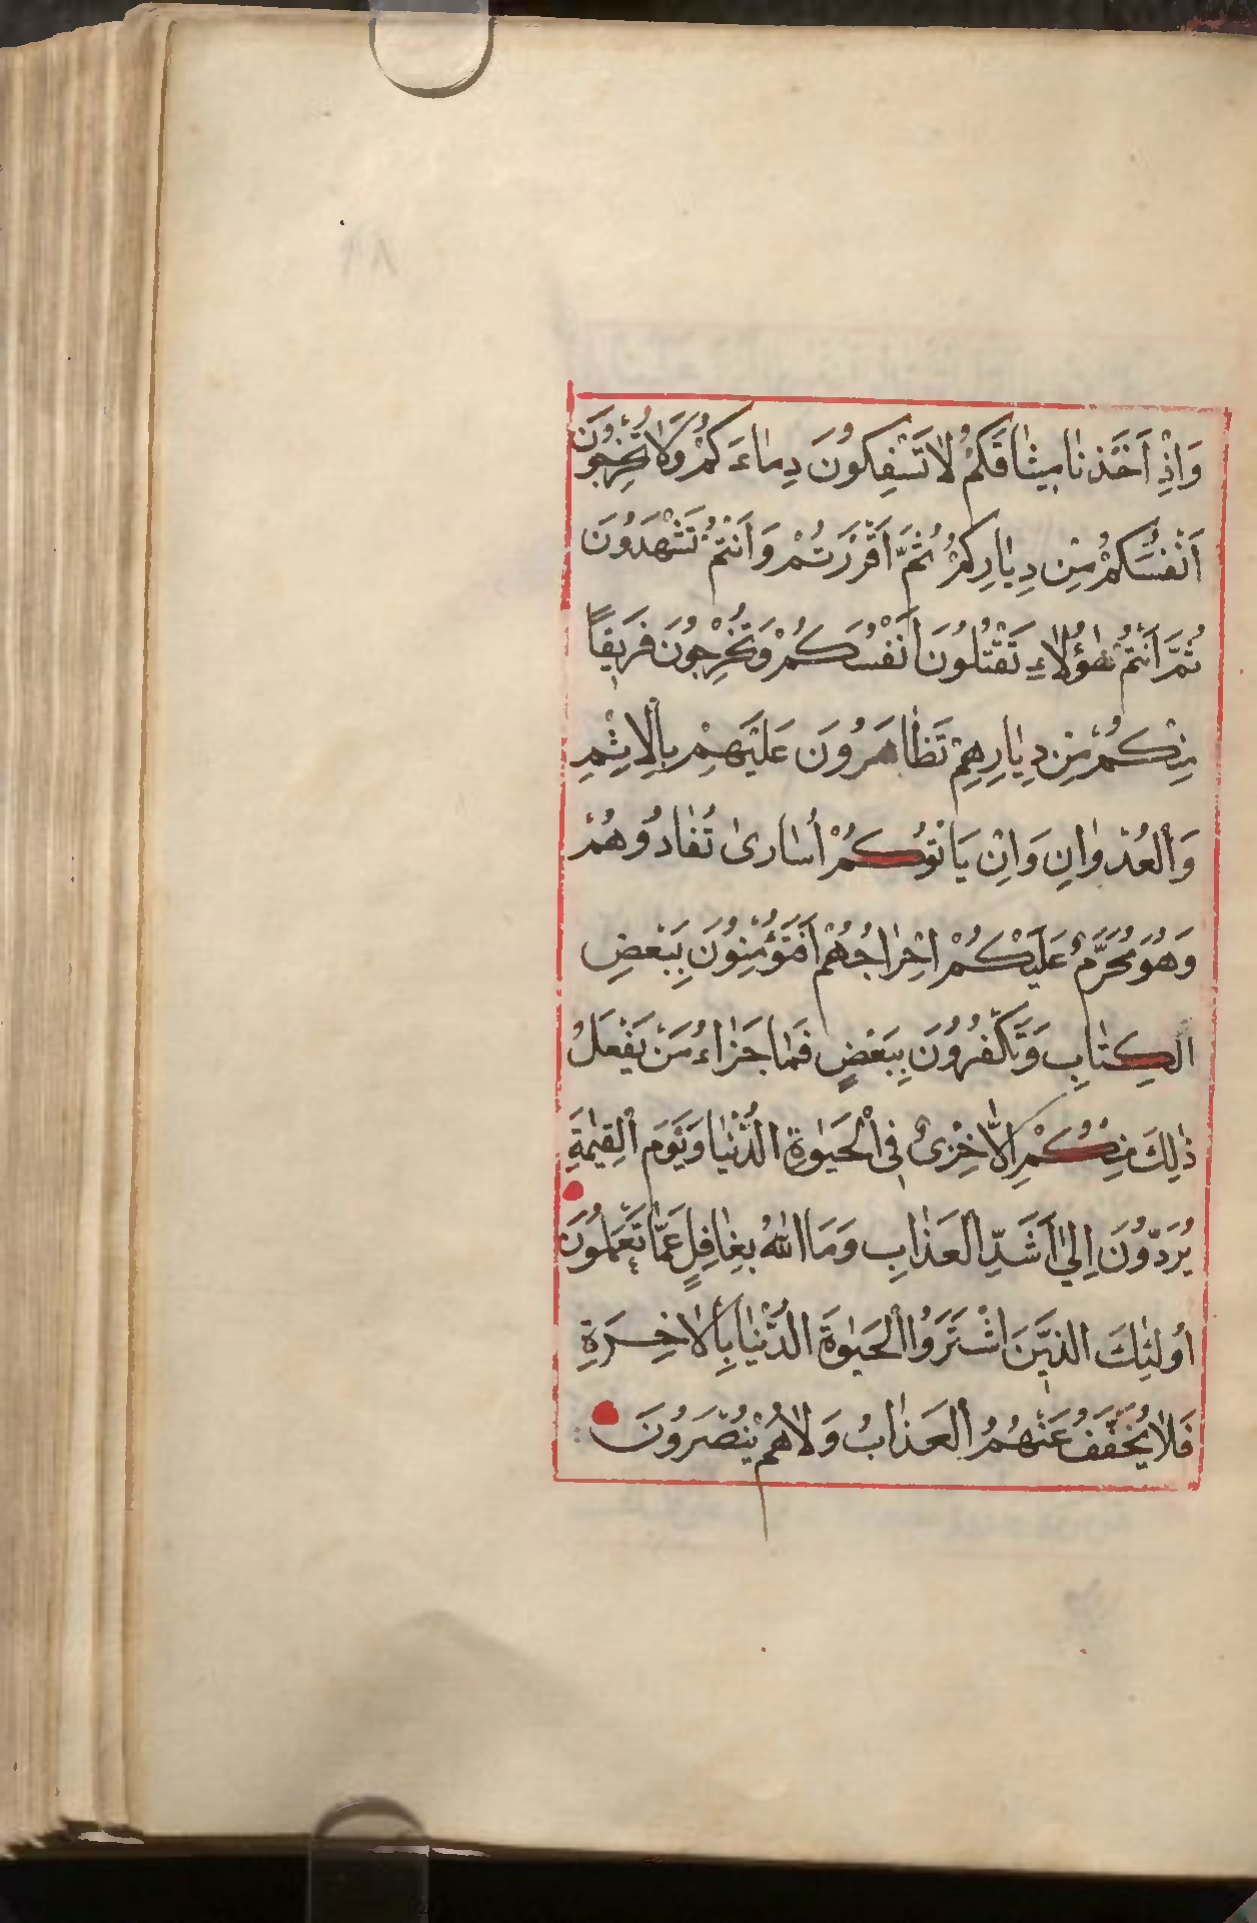 وَاِذْ اَخَذْنٰا مِيثٰاقَكُمْ لٰا تَسْفِكُونَ دِمٰاءَكُمْ وَلٰا تُخْرِجُونَ
اَنْفُسَكُمْ مِنْ دِيٰارِكُمْ ثُمَّ اَقْرَرْتُمْ وَاَنْتُمْ تَشْهَدُونَ
ثُمَّ اَنْتُمْ هٰؤُلٰاءِ تَقْتُلُونَ اَنْفُسَكُمْ وَتُخْرِجُونَ فَرِيقاً
مِنْكُمْ مِنْ دِيٰارِهِمْ تَظٰاهَرُونَ عَلَيْهِمْ بِالْاِثْمِ
وَالْعُدْوٰانِ وَاِنْ يَاْتُوكُمْ اُسٰارىٰ تُفٰادُوهُمْ
وَهُوَ مُحَرَّمٌ عَلَيْكُمْ اِخْرٰاجُهُمْ اَفَتُؤْمِنُونَ بِبَعْضِ
الْكِتٰابِ وَتَكْفُرُونَ بِبَعْضٍ فَمٰا جَزٰاءُ مَنْ يَفْعَلُ
ذٰلِكَ مِنْكُمْ اِلّٰا خِزْىٌ فِى الْحَيٰوةِ الدُّنْيٰا وَيَوْمَ الْقِيٰمَةِ
يُرَدُّونَ اِلىٰ اَشَدِّ الْعَذٰابِ وَمَا اللّٰهُ بِغٰافِلٍ عَمّٰا تَعْمَلُونَ
اُولٰئِكَ الَّذِينَ اشْتَرَوُا الْحَيٰوةَ الدُّنْيٰا بِالْاٰخِرَةِ
فَلٰا يُخَفَّفُ عَنْهُمُ الْعَذٰابُ وَلٰا هُمْ يُنْصَرُونَ